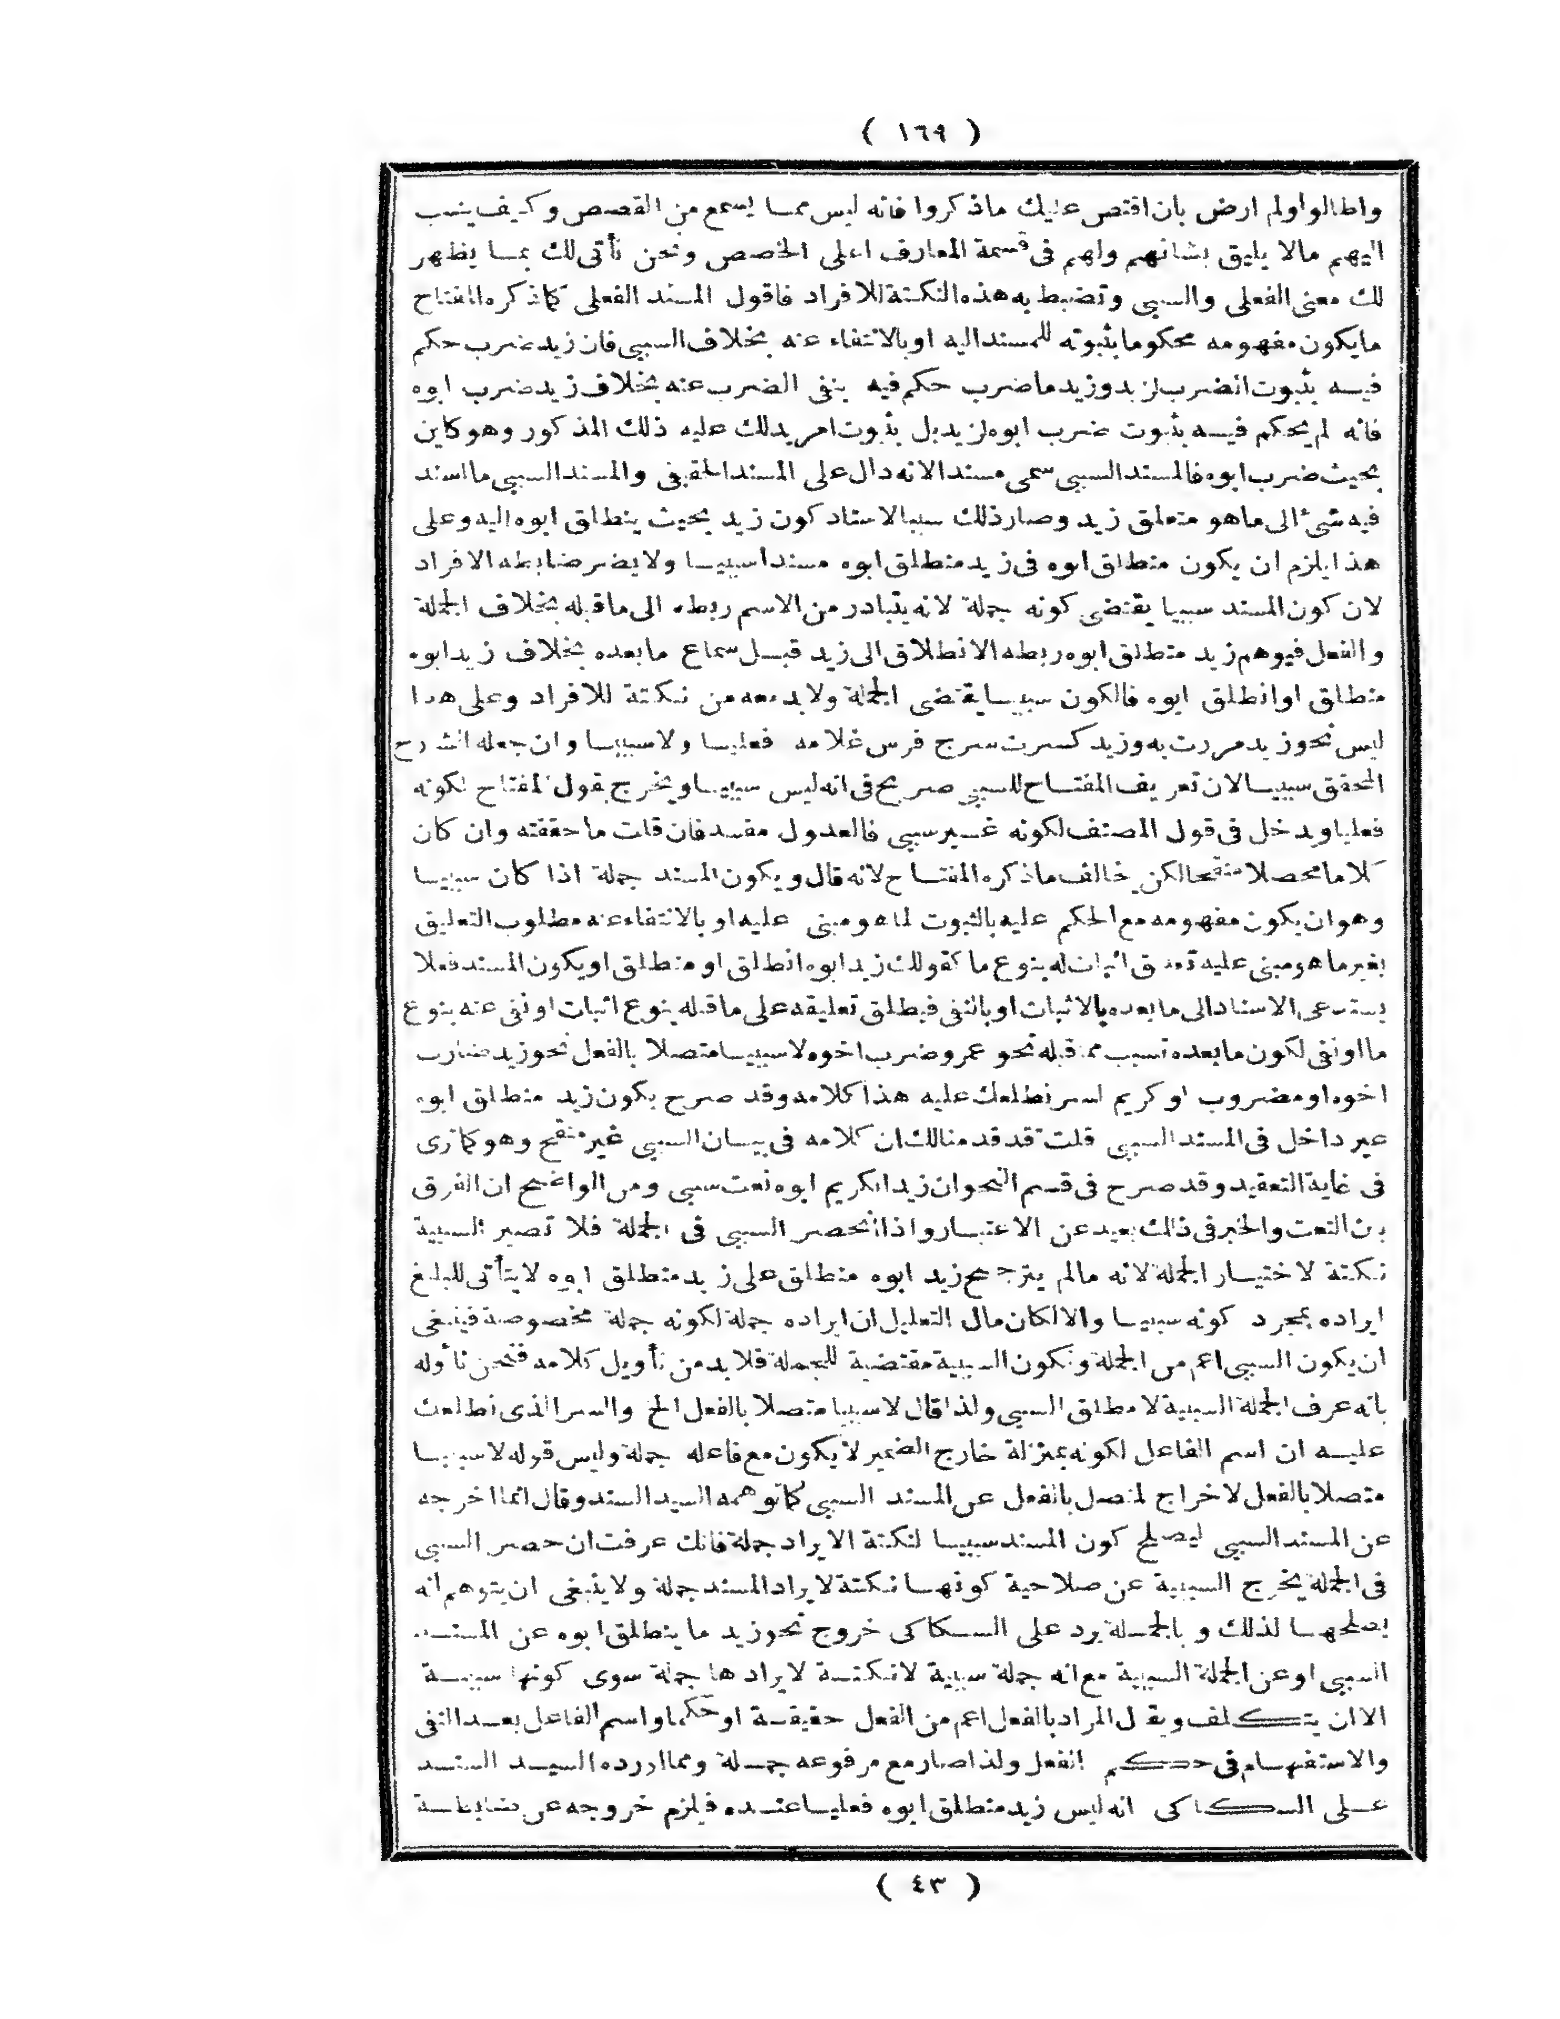 ( ١٦٩ )
واطالوا ولم ارض بان اقتص عليك ماذكروا فانه ليس مما يسمع من القصص وكيف ينسب
اليهم مالا يليق بشانهم ولهم فى قسمة المعارف اعلى الحصص ونحن نأتى لك بما يظهر
لك معنى الفعلى والسببى وتضبط به هذه النكتة للافراد فاقول المسند الفعلى كماذكره المفتاح
مايكون مفهومه محكوما بثبوته للمسند اليه او بالانتفاء عنه بخلاف السببى فان زيد ضرب حكم
فيه بثبوت الضرب لزيد وزيد ماضرب حكم فيه بنفى الضرب عنه بخلاف زيد ضرب ابوه
فانه لم يحكم فيه بثبوت ضرب ابوه لزيد بل بثبوت امر يدلك عليه ذلك المذكور وهو كاين
بحيث ضرب ابوه فالمسند السببى سمى مسندا لانه دال على المسند الحقيقى والمسند السببى ما اسند
فيه شئ الى ماهو متعلق زيد وصار ذلك سببا لاسناد كون زيد بحيث ينطلق ابوه اليه وعلى
هذا يلزم ان يكون منطلق ابوه فى زيد منطلق ابوه مسندا سببيا ولا يضر ضابطه الافراد
لان كون المسند سببيا يقتضى كونه جملة لانه يتبادر من الاسم ربطه الى ماقبله بخلاف الجملة
والفعل فيوهم زيد منطلق ابوه ربطه الانطلاق الى زيد قبل سماع مابعده بخلاف زيد ابوه
منطلق او انطلق ابوه فالكون سببيا يقتضى الجملة ولابد معه من نكتة للافراد وعلى هذا
ليس نحو زيد مررت به وزيد كسرت سرج فرس غلامه فعليا ولا سببيا وان جعله الشارح
المحقق سببيا لان تعريف المفتاح للسببى صريح فى انه ليس سببيا ويخرج بقول المفتاح لكونه
فعليا ويدخل فى قول المصنف لكونه غير سببى فالعدول مفسد فان قلت ماحققته وان كان
كلاما محصلا منقحا لكن يخالف ماذكره المفتاح لانه قال ويكون المسند جملة اذا كان سببيا
وهو ان يكون مفهومه مع الحكم عليه بالثبوت لما هو مبنى عليه او بالانتفاء عنه مطلوب التعليق
بغير ماهو مبنى عليه تعليق اثبات له بنوع ما كقولك زيد ابوه انطلق او منطلق او يكون المسند فعلا
يستدعى الاسناد الى مابعده بالاثبات او بالنفى فيطلق تعليقه على ماقبله بنوع اثبات او نفى عنه بنوع
ما او نفى لكون مابعده تسبب مما قبله نحو عمرو ضرب اخوه لا سببيا متصلا بالفعل نحو زيد ضارب
اخوه او مضروب او كريم لسر نطلعك عليه هذا كلامه وقد صرح بكون زيد منطلق ابوه
غير داخل فى المسند السببى قلت قد قدمنا لك ان كلامه فى بيان السببى غير منقح وهو كما ترى
فى غاية التعقيد وقد صرح فى قسم النحو ان زيد الكريم ابوه نعت سببى ومن الواضح ان الفرق
بين النعت والخبر فى ذلك بعيد عن الاعتبار واذا انحصر السببى فى الجملة فلا تصير السببية
نكتة لاختيار الجملة لانه مالم يترجح زيد ابوه منطلق على زيد منطلق ابوه لايتأتى للبليغ
ايراده بمجرد كونه سببيا والا لكان مال التعليل ان ايراده جملة لكونه جملة مخصوصة فينبغى
ان يكون السببى اعم من الجملة وتكون السببية مقتضية للجملة فلابد من تأويل كلامه فنحن نأوله
بانه عرف الجملة السببية لا مطلق السببى ولذا قال لا سببيا متصلا بالفعل الخ والسر الذى نطلعك
عليه ان اسم الفاعل لكونه بمنزلة خارج الضمير لايكون مع فاعله جملة وليس قوله لا سببيا
متصلا بالفعل لاخراج المتصل بالفعل عن المسند السببى كما توهمه السيد السند وقال انما اخرجه
عن المسند السببى ليصلح كون المسند سببيا لنكتة الايراد جملة فانك عرفت ان حصر السببى
فى الجملة يخرج السببية عن صلاحية كونها نكتة لايراد المسند جملة ولا ينبغى ان يتوهم انه
يصلحها لذلك وبالجملة يرد على السكاكى خروج نحو زيد ماينطلق ابوه عن المسند
السببى او عن الجملة السببية مع انه جملة سببية لا نكتة لايرادها جملة سوى كونها سببية
الا ان يتكلف ويقال المراد بالفعل اعم من الفعل حقيقة او حكما واسم الفاعل بعد النفى
والاستفهام فى حكم الفعل ولذا صار مع مرفوعه جملة ومما اورده السيد السند
على السكاكى انه ليس زيد منطلق ابوه فعليا عنده فيلزم خروجه عن ضابطة
( ٤٣ )